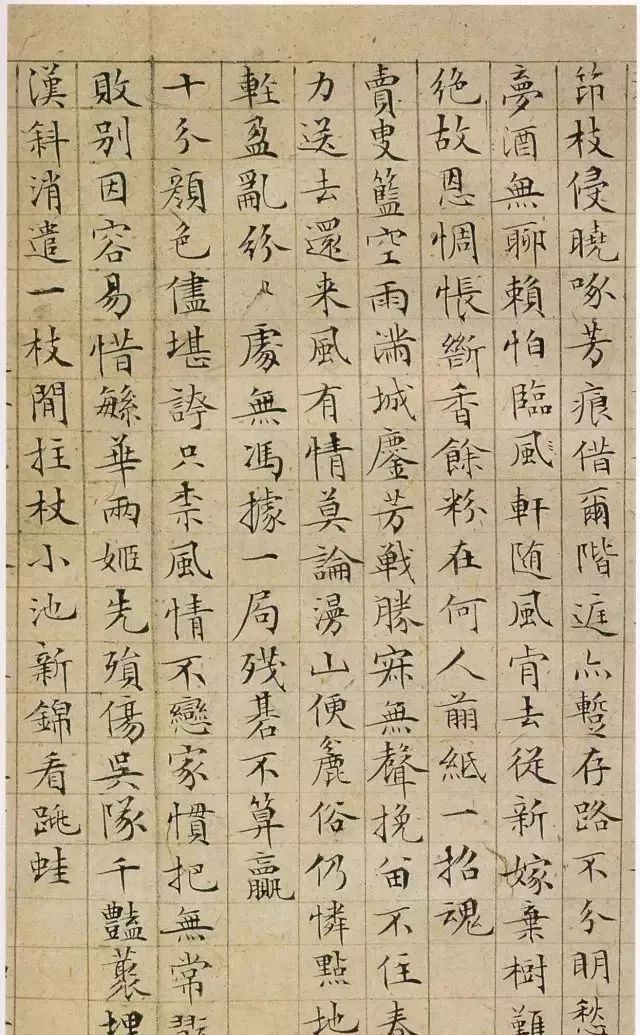 笻枝侵曉啄芳痕借爾階庭亦暫存路不分明愁
夢酒無聊賴怕臨風軒随風肯去從新嫁棄樹難
絶故恩惆悵斷香餘粉在何人剪紙一招魂
賣叟籃空雨滿城鏖芳戰勝寂無聲挽留不住春
力送去還来風有情莫論漫山便麄俗仍憐點地
輕盈亂紛〻處無馮據一局殘碁不算贏
十分顏色儘堪誇只柰風情不戀家慣把無常
敗别因容易惜繁華兩姬先殞傷吳隊千豔叢埋
漢斜消遣一枝閒拄杖小池新錦看跳蛙